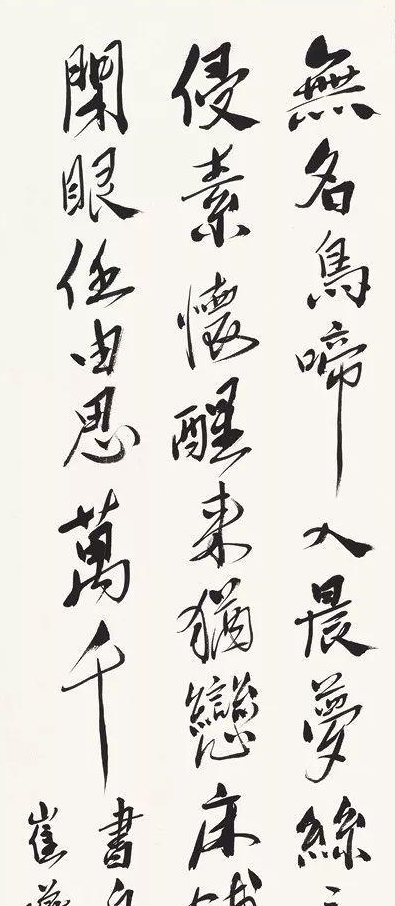 無名鳥啼入晨夢絲
侵素懷醒來猶戀床
閑眼任由思萬千
書
崔